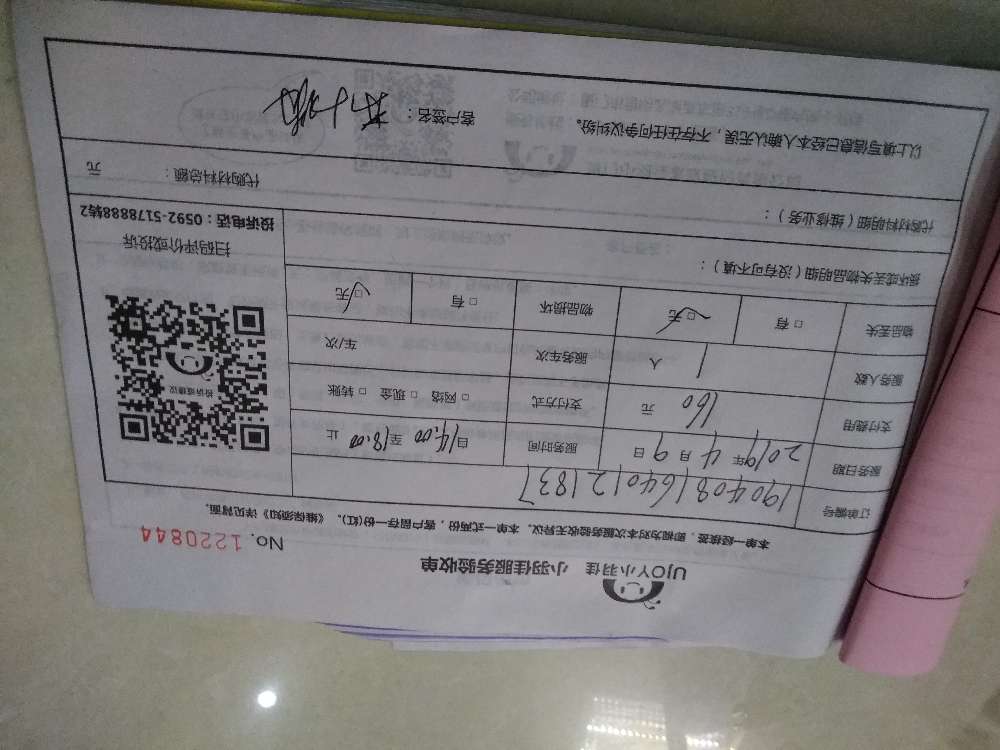 UJOY小羽佳 小羽佳服务验收单
No. 1220844
本单一经接签，即视为对本次服务验收无异议。本单一式两份，客户留存一份(红)。《维保须知》详见背面。
订单编号 1904081640121837
服务日期 2019年4月9日 服务时间 自14:00至18:00止
支付费用 160元 支付方式 □网络 □现金 □转账
服务人数 1人 服务车次 车/次
物品丢失 □有 □无 物品损坏 □有 □无
投诉或建议
扫码评价或投诉
投诉电话：0592-5178888转2
损坏或丢失物品明细（没有可不填）：
代购材料明细（维修业务）： 代购材料总额： 元
以上填写信息已经本人确认无误，不存在任何争议纠纷。 客户签名：